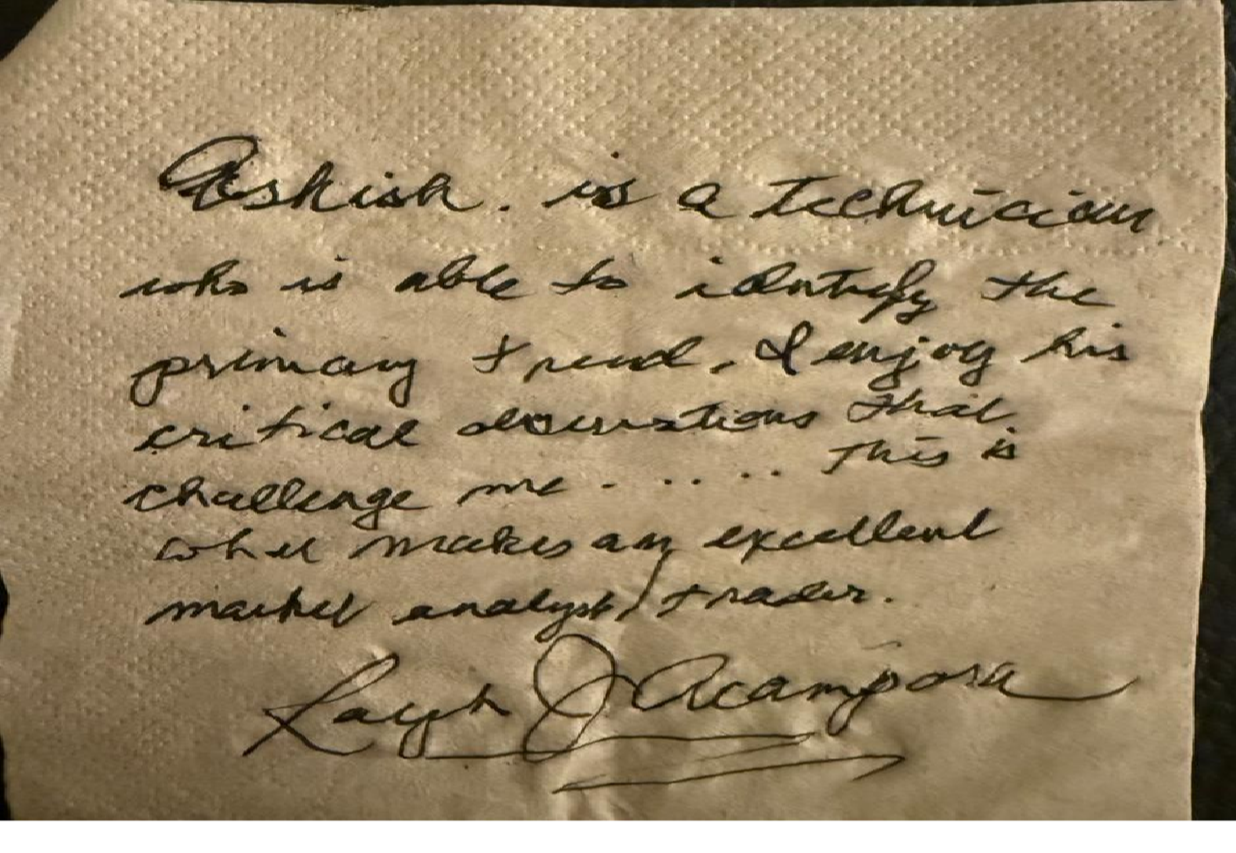 Ashish. is a technician
who is able to identify the
primary trend. I enjoy his
critical observations that
challenge me ..... This is
what makes an excellent
market analyst/trader.
Ralph J Acampora